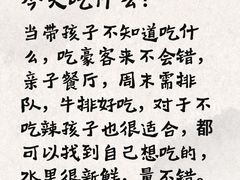 今天吃什么？
当带孩子不知道吃什
么，吃豪客来不会错，
亲子餐厅，周末需排
队，牛排好吃，对于不
吃辣孩子也很适合，都
可以找到自己想吃的，
水果很新鲜，量不错。